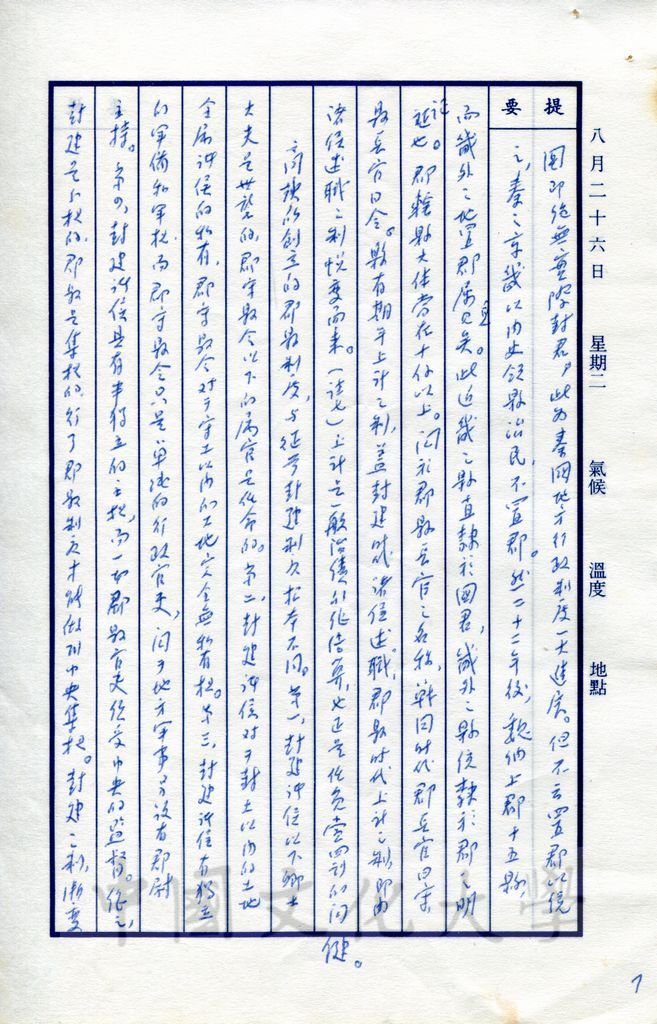 八月二十六日 星期二 氣候 溫度 地點
提要
國即絕無實際封君，此為秦國地方行政制度一大進展。但不云置郡以統
之，秦之京畿以內史領縣治民，不置郡。然二十二年後，魏納上郡十五縣，
而畿外之地置郡屬見矣。此近畿之縣直隸於國君，畿外之縣統隸於郡之明
證也。郡轄縣大體當在十位以上。關於郡縣長官之名稱，戰國時代郡長官曰守，
縣長官曰令。縣有期年上計之制，蓋封建時代諸侯述職，郡縣時代上計之制，即由
諸侯述職之制悅變而來。（註七）上計是一般治績的估算，也正是任免黜陟的關
健。
商鞅所創立的郡縣制度，與從前封建制度根本不同。第一，封建諸侯以下卿士
大夫是世襲的，郡守縣令以下的屬官是任命的。第二，封建諸侯對于封土以內的土地
全屬諸侯的私有，郡守縣令對于守土以內的土地完全無私有權。第三，封建諸侯有獨立
的軍備和軍權，而郡守縣令只是單純的行政官吏，關于地方軍事另設有郡尉
主持。第四，封建諸侯具有半獨立的主權，而一切郡縣官吏統受中央的監督。總之，
封建是分權的，郡縣是集權的，行了郡縣制度才能做到中央集權。封建之制，漸變
中國文化大學
7